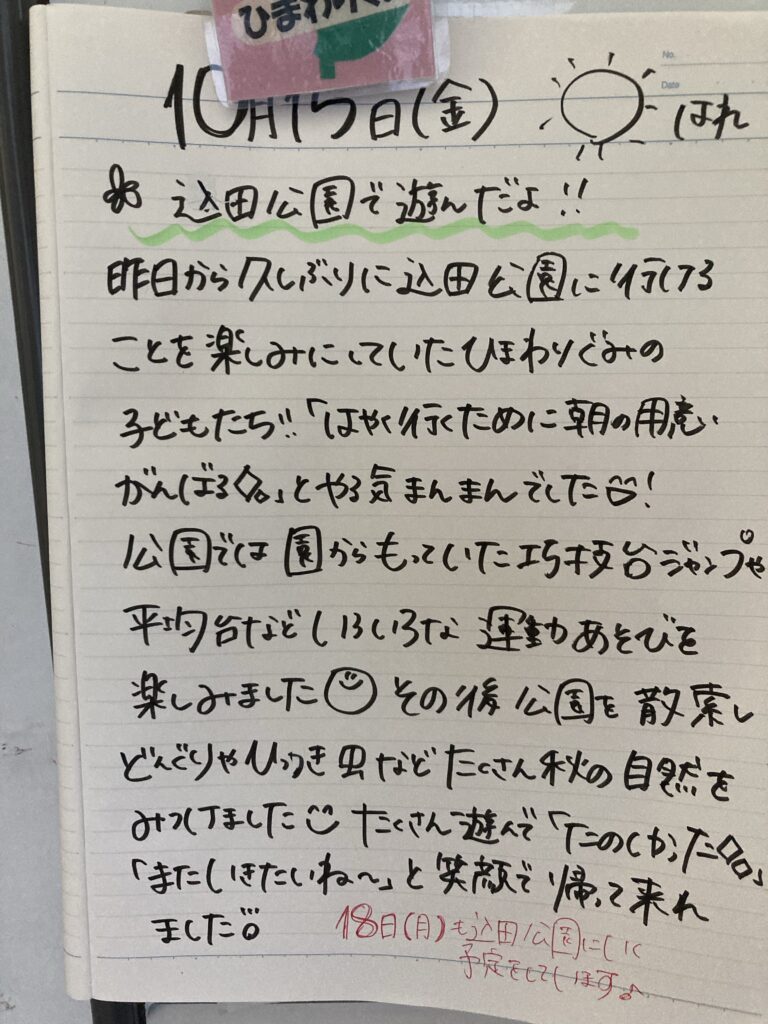 ひまわりぐみ
10月15日(金) はれ
込田公園で遊んだよ!!
昨日から久しぶりに込田公園に行ける
ことを楽しみにしていたひまわりぐみの
子どもたち!!「はやく行くために朝の用意
がんばる!!」とやる気まんまんでした!
公園では園からもっていた巧技台ジャンプや
平均台などいろいろな運動あそびを
楽しみました その後公園を散索し
どんぐりやひっつき虫などたくさん秋の自然を
みつけました たくさん遊んで「たのしかった!!」
「またいきたいね～」と笑顔で帰って来れ
ました!!
18日(月)も込田公園にいく
予定をしています♪
No.
Date